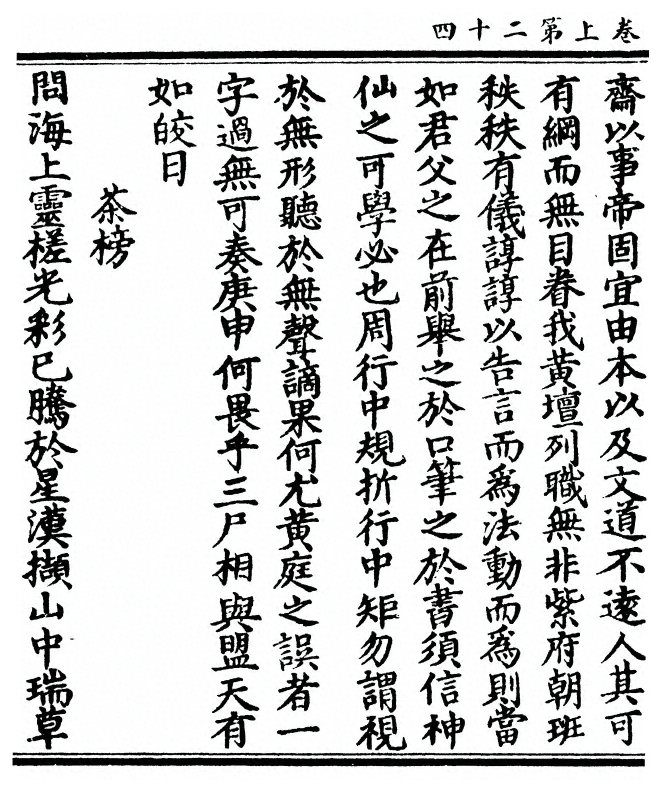 卷上第二十四
齋以事帝固宜由本以及文道不遠人其可
有綱而無目眷我黄壇列職無非紫府朝班
秩秩有儀諄諄以告言而爲法動而爲則當
如君父之在前舉之於口筆之於書須信神
仙之可學必也周行中規折行中矩勿謂視
於無形聽於無聲謫果何尤黄庭之誤者一
字過無可奏庚申何畏乎三尸相與盟天有
如皎日
茶榜
問海上靈槎光彩已騰於星漢擷山中瑞草